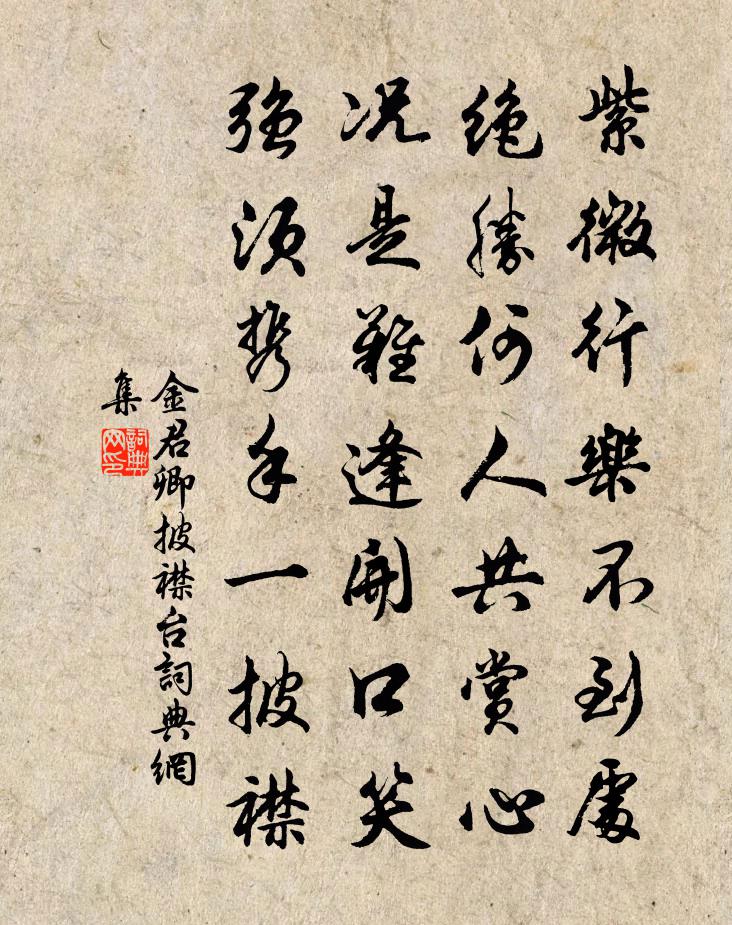 紫微行樂不到處
絶勝何人共賞心
况是難逢開口笑
強須携手一披襟
金君卿披襟台詞典網
集
詞典
网印